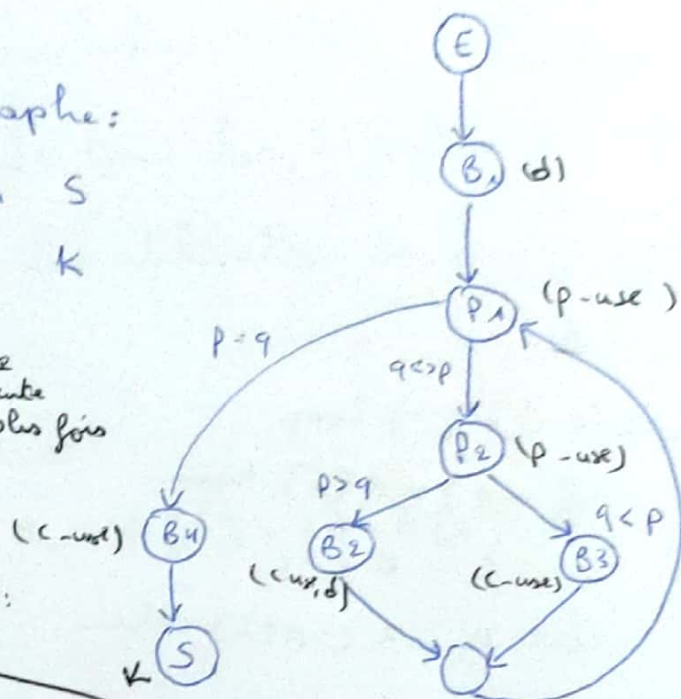 E
aphe:
B1 (d)
S
K
P1 (p-use)
p = q
q<>p
plus fois
P2 (p-use)
p>q
q<p
(c-use) B4
B2
B3
(c-use, d)
(c-use)
:
S